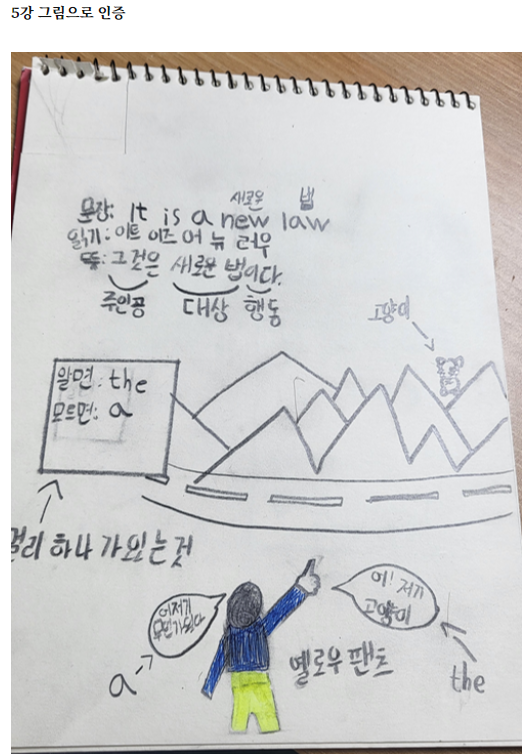 5강 그림으로 인증
새로운 법
문장: It is a new law
읽기: 이트 이즈 어 뉴 러우
뜻: 그것은 새로운 법이다.
주인공 대상 행동
고양이
알면: the
모르면: a
멀리 하나 가 있는 것
어 저기
무언가 있다
어! 저기
고양이
옐로우 팬츠
a
the